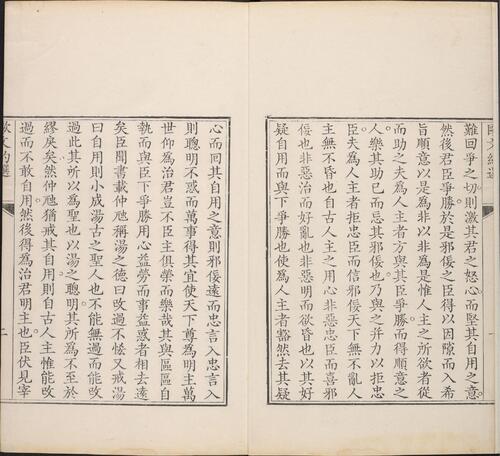 歐文約選
一
難回爭之切則激其君之怒心而堅其自用之意
然後君臣爭勝於是邪佞之臣得以因隙而入希
旨順意以是為非以非為是惟人主之所欲者從
而助之夫為人主者方與其臣爭勝而得順意之
人樂其助已而忘其邪佞也乃與之并力以拒忠
臣夫為人主者拒忠臣而信邪佞天下無不亂人
主無不昏也自古人主之用心非惡忠臣而喜邪
佞也非惡治而好亂也非惡明而欲昏也以其好
疑自用而與下爭勝也使為人主者豁然去其疑
心而回其自用之意則邪佞遠而忠言入忠言入
則聰明不惑而萬事得其宜使天下尊為明主萬
世仰為治君豈不臣主俱榮而樂哉其與區區自
執而與臣下爭勝用心益勞而事益惑者相去遠
矣臣聞書載仲虺稱湯之德曰改過不恡又戒湯
曰自用則小成湯古之聖人也不能無過而能改
過此其所以為聖也以湯之聰明其所為不至於
繆戾矣然仲虺猶戒其自用則自古人主惟能改
過而不敢自用然後得為治君明主也臣伏見宰
歐文約選
二